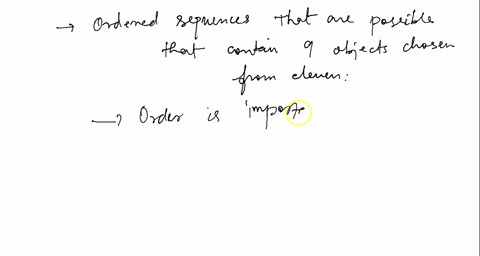 → Ordered sequences that are possible
that contain 9 objects chosen
from eleven:
→ Order is importa